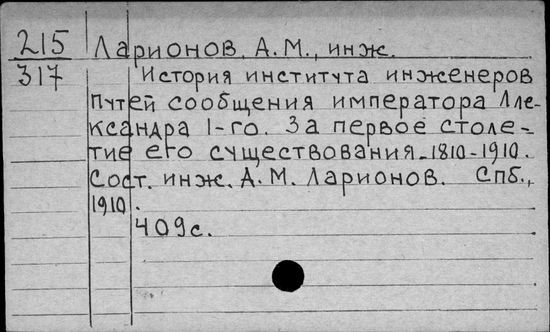 215 Ларионов, А.М., инж.
317 История института инженеров
Путей сообщения императора Але-
ксандра 1-го. За первое столе-
тие его существования. 1810-1910.
Сост. инж. А.М. Ларионов. Спб.,
1910.
409с.